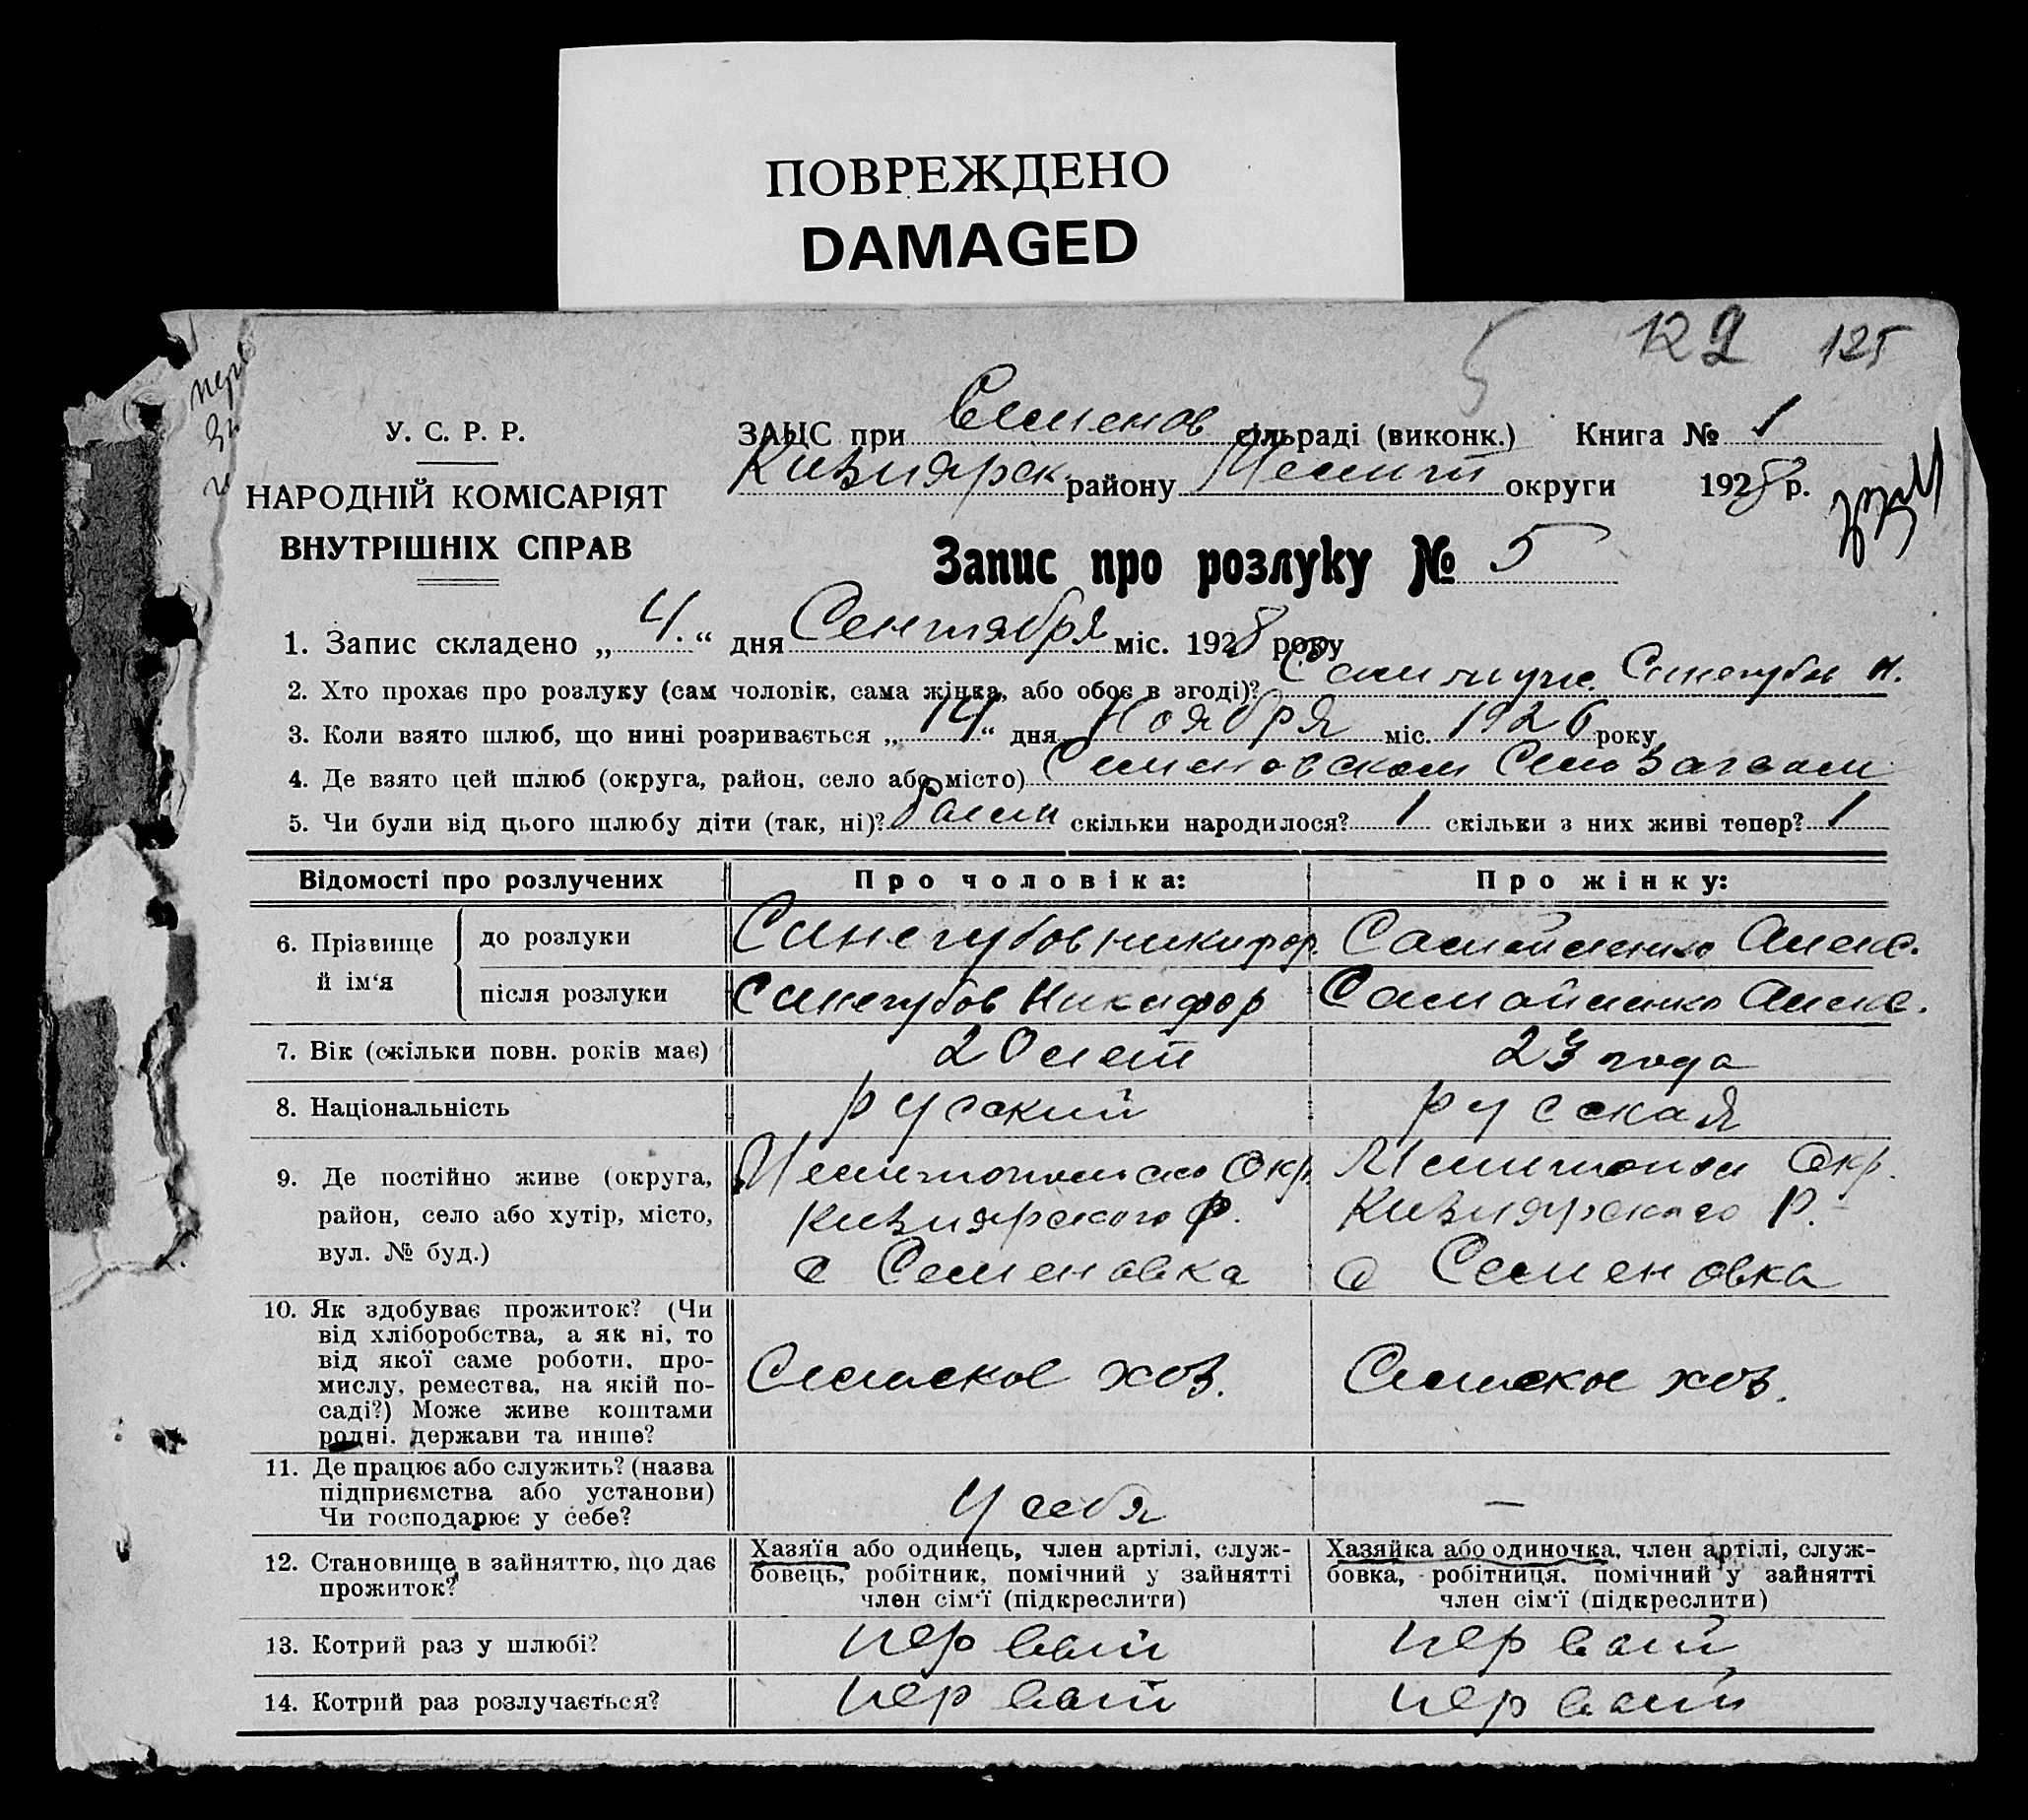 ПОВРЕЖДЕНО
DAMAGED
5 122 125
У. С. Р. Р.
НАРОДНІЙ КОМІСАРІЯТ
ВНУТРІШНІХ СПРАВ
ЗАЦС при Семенов сільраді (виконк.) Книга № 1
Кизиярск району Мелит округи 1928 р.
Запис про розлуку № 5
1. Запис складено „ 4. “ дня Сентября міс. 1928 року
2. Хто прохає про розлуку (сам чоловік, сама жінка, або обоє в згоді)? Сам муж. Синегубов Н.
3. Коли взято шлюб, що нині розривається „ 14 “ дня Ноября міс. 1926 року
4. Де взято цей шлюб (округа, район, село або місто) Семеновском Сель Загсом
5. Чи були від цього шлюбу діти (так, ні)? были скільки народилося? 1 скільки з них живі тепер? 1
Відомості про розлучених Про чоловіка: Про жінку:
6. Прізвище й ім‘я до розлуки Синегубов Никифор. Самойленко Алекс.
після розлуки Синегубов Никифор Самойленко Алекс.
7. Вік (скільки повн. років має) 20 лет 23 года
8. Національність русский русская
9. Де постійно живе (округа, Мелитопольско Окр. Мелитопол Окр.
район, село або хутір, місто, Кизиярского Р. Кизиярского Р.
вул. № буд.) с Семеновка с Семеновка
10. Як здобуває прожиток? (Чи
від хліборобства, а як ні, то
від якої саме роботи, про-
мислу, ремества, на якій по-
саді?) Може живе коштами
родні, держави та инше?
Сельское хоз. Сельское хоз.
11. Де працює або служить? (назва
підприємства або установи)
Чи господарює у себе?
У себя —
12. Становище в зайняттю, що дає
прожиток?
Хазяїн або одинець, член артілі, служ-
бовець, робітник, помічний у зайнятті
член сім‘ї (підкреслити)
Хазяйка або одиночка, член артілі, служ-
бовка, робітниця, помічний у зайнятті
член сім‘ї (підкреслити)
13. Котрий раз у шлюбі? первый первый
14. Котрий раз розлучається? первый первый